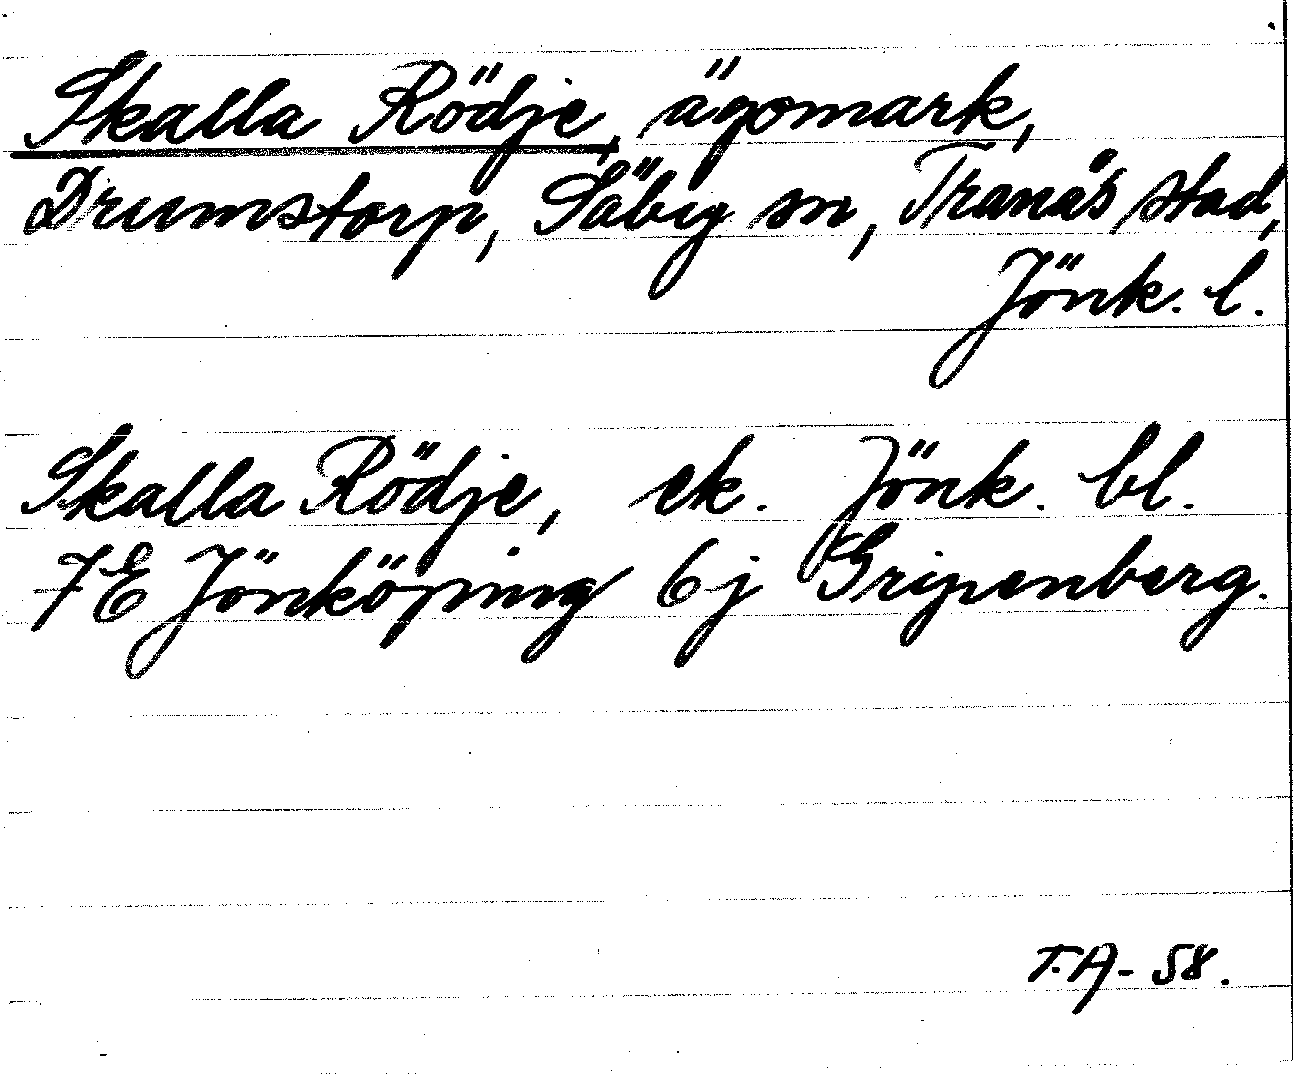 Skalla Rödje, ägomark,
Drumstorp, Säby sn, Tranås stad,
Jönk. l.
Skalla Rödje, ek. Jönk. bl.
7E Jönköping 6j Gripenberg.
T.A-58.